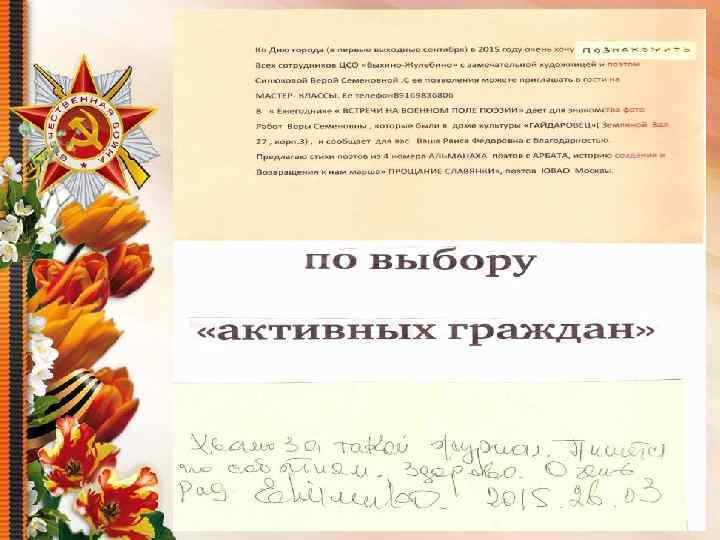 Ко Дню города (в первые выходные сентября) в 2015 году очень хочу ПОЗНАКОМИТЬ
Всех сотрудников ЦСО «Выхино-Жулебино» с замечательной художницей и поэтом
Синюковой Верой Семеновной .С ее позволения можете приглашать в гости на
МАСТЕР- КЛАССЫ. Ее телефон89169836806
В « Ежеднечнике « ВСТРЕЧИ НА ВОЕННОМ ПОЛЕ ПОЭЗИИ» дает для знакомства фото
Работ Веры Семеновны , которые были в доме культуры «ГАЙДАРОВЕЦ»( Земляной Вал
27 , корп.3) , и сообщает для вас Ваша Раиса Федоровна с благодарностью.
Предлагаю стихи поэтов из 4 номера АЛЬМАНАХА поэтов с АРБАТА, историю создания и
Возвращения к нам марша» ПРОЩАНИЕ СЛАВЯНКИ», поэтов ЮВАО Москвы.
ОТЕЧЕСТВЕННАЯ ВОЙНА
по выбору
«активных граждан»
Хвалю за такой журнал. Пишется
по событиям. Здорово. Очень
рад 2015.26.03